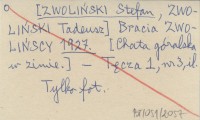 [ZWOLIŃSKI Stefan, ZWO-
LIŃSKI Tadeusz] Bracia ZWO-
LIŃSCY 1927. [Chata góralska
w zimie.] — Tęcza 1, nr 3, il.
Tylko fot.